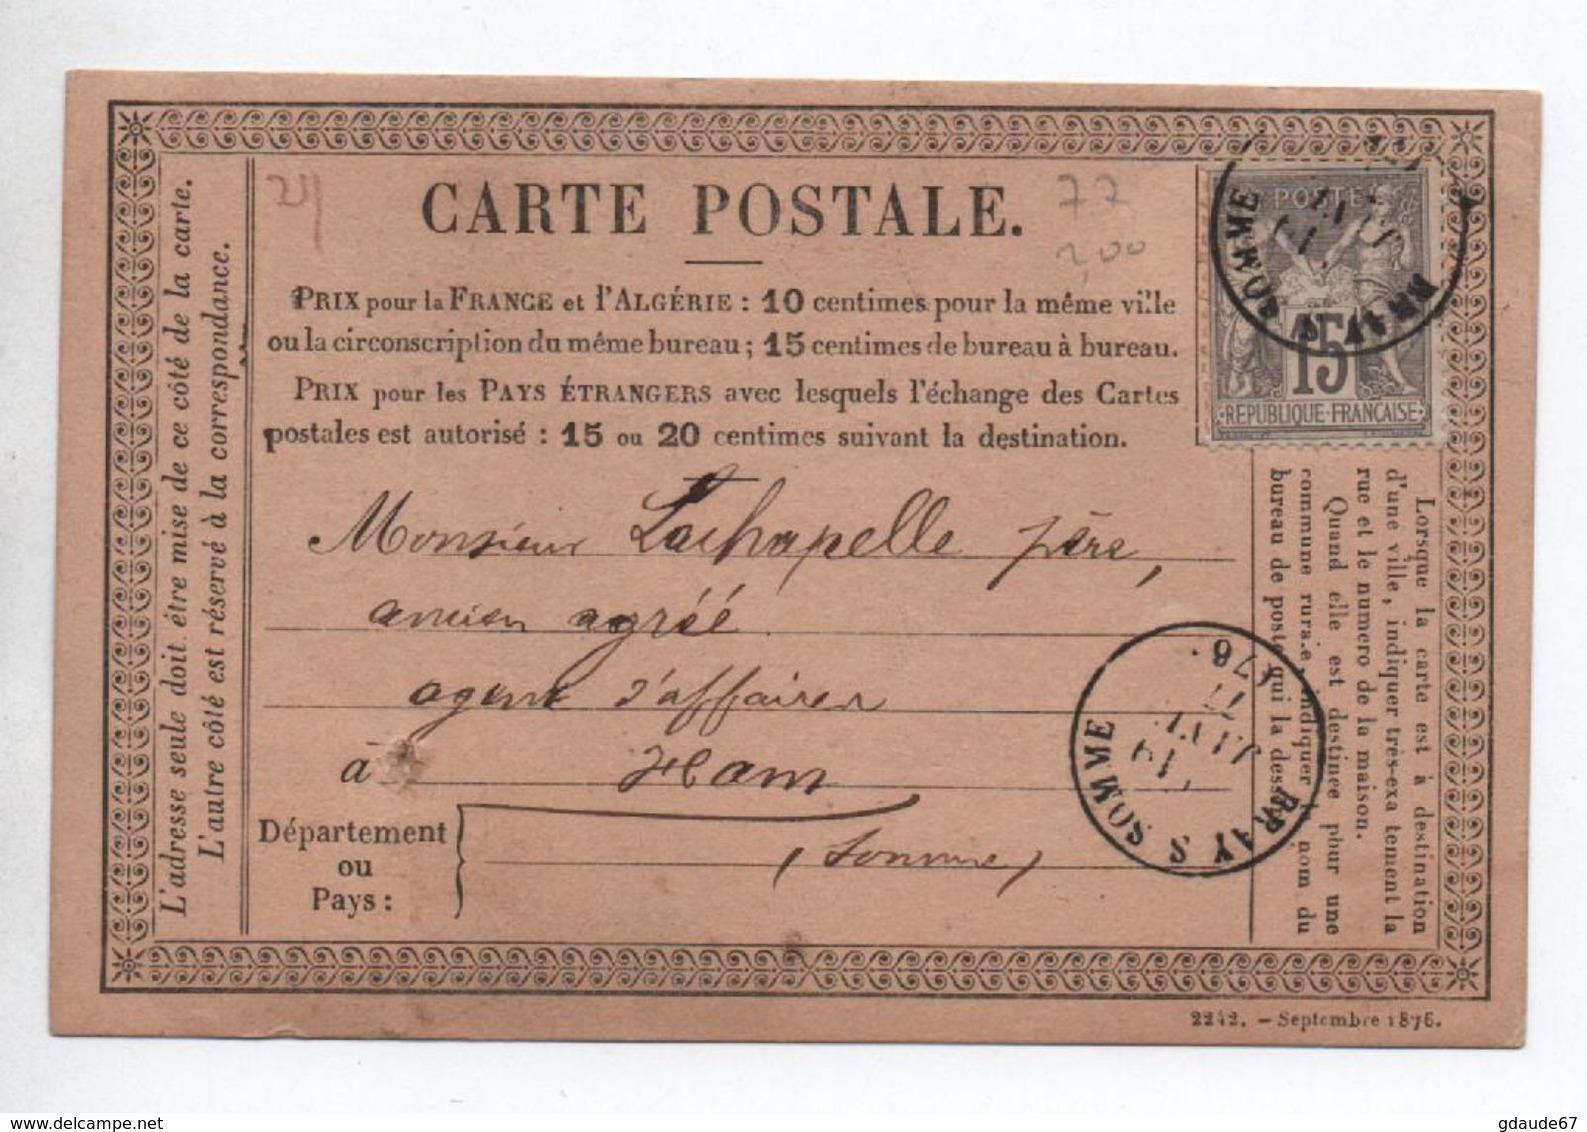 CARTE POSTALE.
77
2,00
PRIX pour la FRANCE et l'ALGÉRIE : 10 centimes pour la même ville
ou la circonscription du même bureau ; 15 centimes de bureau à bureau.
PRIX pour les PAYS ÉTRANGERS avec lesquels l'échange des Cartes
postales est autorisé : 15 ou 20 centimes suivant la destination.
POSTE
15
REPUBLIQUE FRANÇAISE
BRAY S SOMME
Monsieur Lachapelle père,
ancien agréé
agent d'affaires
à Ham
Département
ou
Pays :
(Somme)
BRAY S SOMME
19
JANV.
77
L'adresse seule doit être mise de ce côté de la carte.
L'autre côté est réservé à la correspondance.
Lorsque la carte est à destination
d'une ville, indiquer très-exactement la
rue et le numéro de la maison.
Quand elle est destinée pour une
commune rurale indiquer nom du
bureau de poste qui la dess
2242. — Septembre 1876.
www.delcampe.net
gdaude67